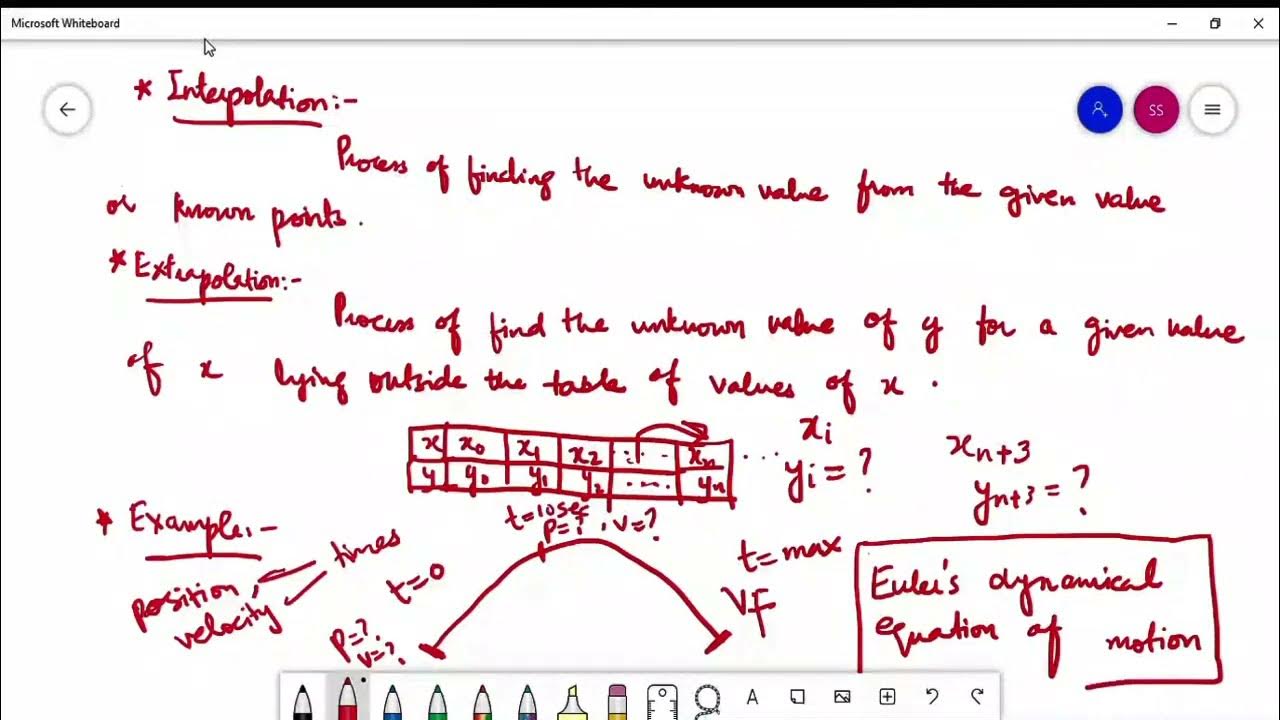 Microsoft Whiteboard
* Interpolation:-
SS
Process of finding the unknown value from the given value
or known points.
* Extrapolation:-
Process of find the unknown value of y for a given value
of x lying outside the table of values of x.
x x0 x1 x2 ... xn ...
y y0 y1 y2 ... yn
xi
yi = ?
xn+3
yn+3 = ?
* Example:-
position
velocity
times
t=0
P=?
v=?
t=10sec
P=? , v=?
t=max
VF
Euler's dynamical
equation of motion
A